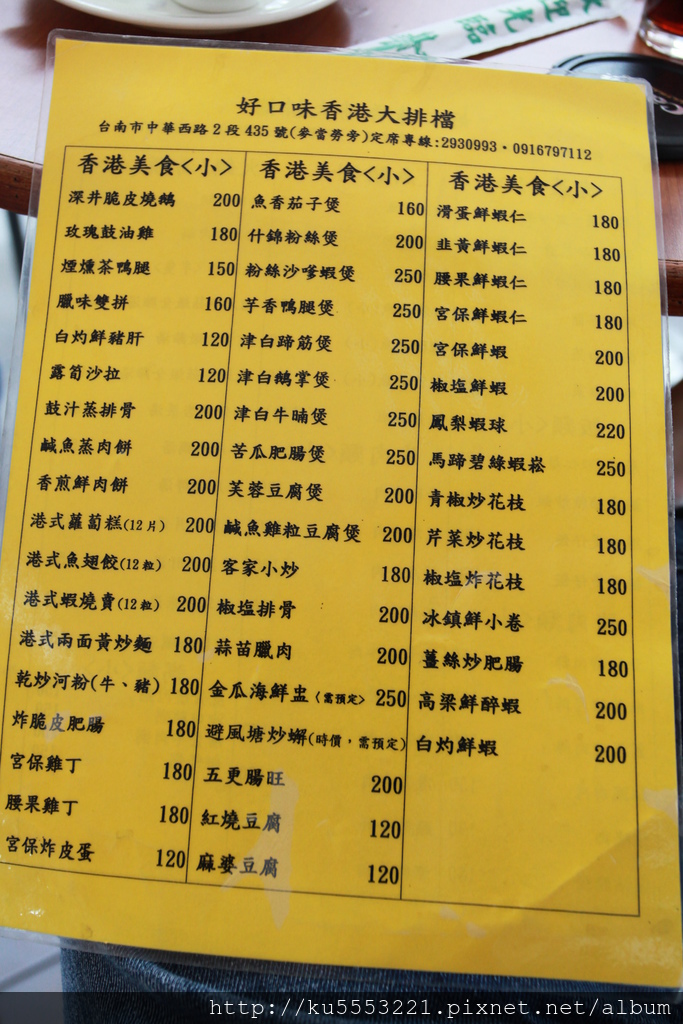 歡迎光臨
好口味香港大排檔
台南市中華西路2段435號(麥當勞旁)定席專線:2930993·0916797112
香港美食<小>
深井脆皮燒鵝 200
玫瑰鼓油雞 180
煙燻茶鴨腿 150
臘味雙拼 160
白灼鮮豬肝 120
露筍沙拉 120
鼓汁蒸排骨 200
鹹魚蒸肉餅 200
香煎鮮肉餅 200
港式蘿蔔糕(12片) 200
港式魚翅餃(12粒) 200
港式蝦燒賣(12粒) 200
港式兩面黃炒麵 180
乾炒河粉(牛、豬) 180
炸脆皮肥腸 180
宮保雞丁 180
腰果雞丁 180
宮保炸皮蛋 120
香港美食<小>
魚香茄子煲 160
什錦粉絲煲 200
粉絲沙嗲蝦煲 250
芋香鴨腿煲 250
津白蹄筋煲 250
津白鵝掌煲 250
津白牛腩煲 250
苦瓜肥腸煲 250
芙蓉豆腐煲 200
鹹魚雞粒豆腐煲 200
客家小炒 180
椒塩排骨 200
蒜苗臘肉 200
金瓜海鮮盅<需預定> 250
避風塘炒蟹(時價，需預定)
五更腸旺 200
紅燒豆腐 120
麻婆豆腐 120
香港美食<小>
滑蛋鮮蝦仁 180
韭黃鮮蝦仁 180
腰果鮮蝦仁 180
宮保鮮蝦仁 180
宮保鮮蝦 200
椒塩鮮蝦 200
鳳梨蝦球 220
馬蹄碧綠蝦崧 250
青椒炒花枝 180
芹菜炒花枝 180
椒塩炸花枝 180
冰鎮鮮小卷 250
薑絲炒肥腸 180
高梁鮮醉蝦 200
白灼鮮蝦 200
http://ku5553221.pixnet.net/album